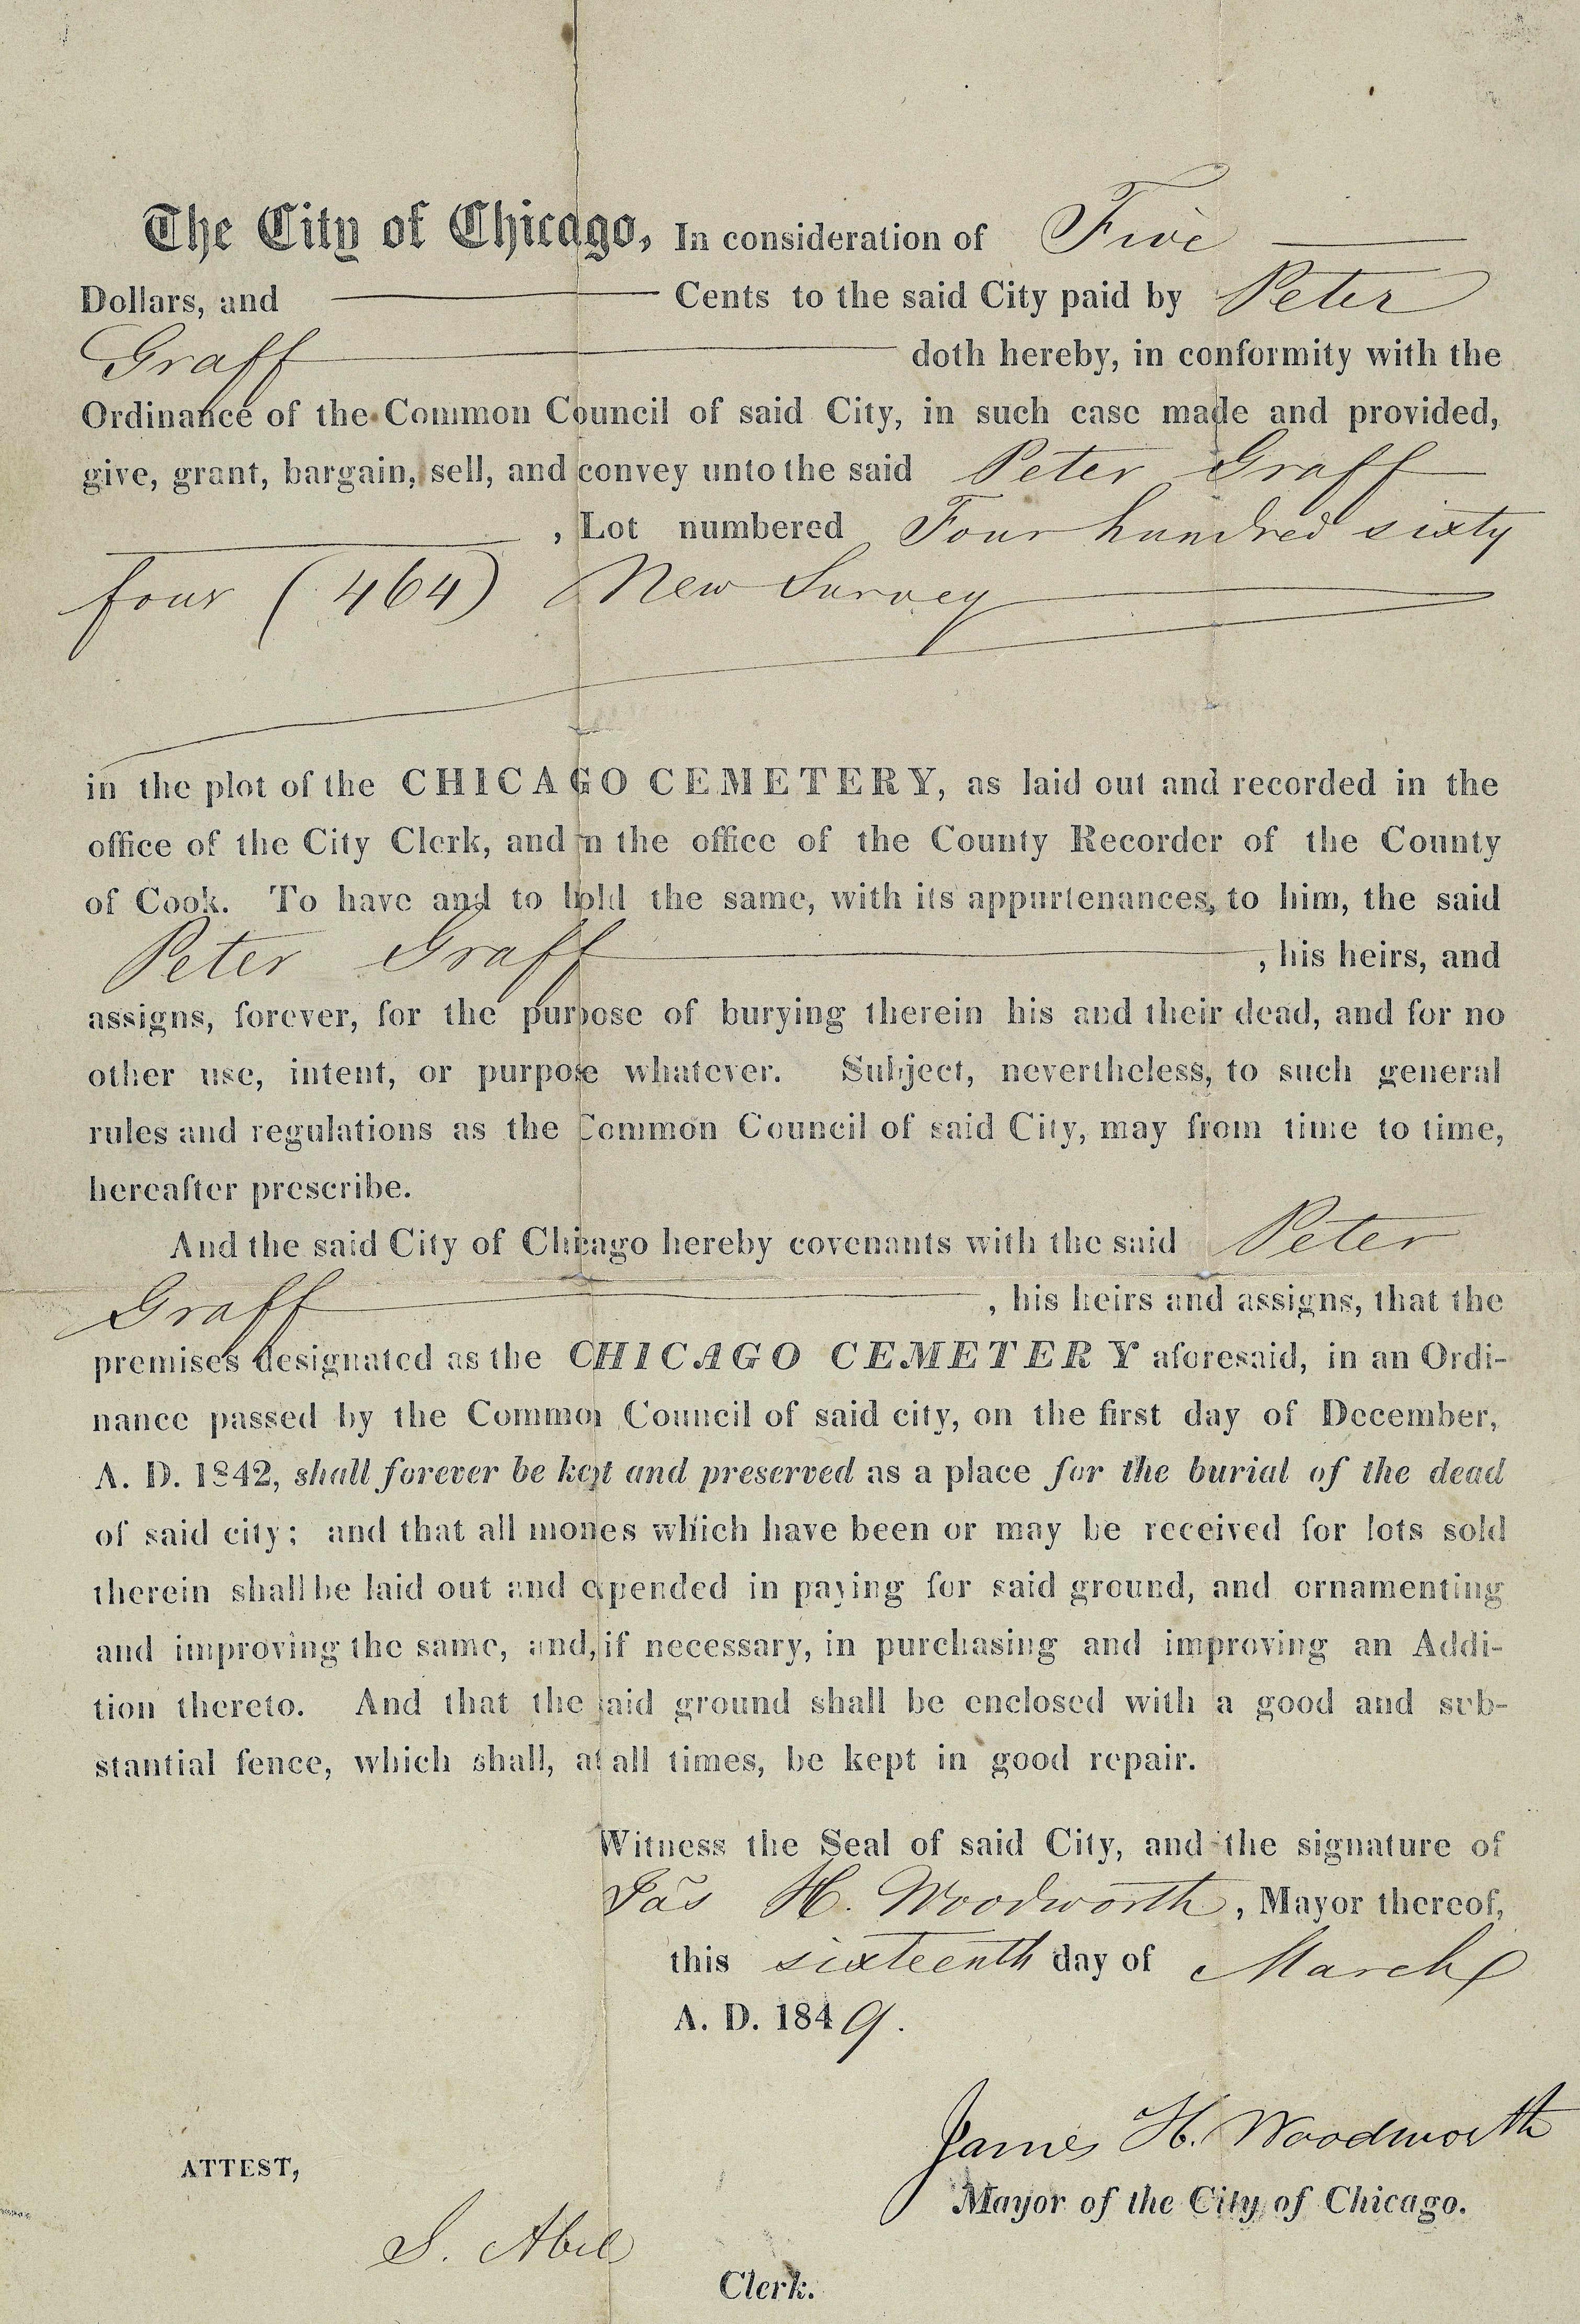 The City of Chicago, In consideration of Five
Dollars, and Cents to the said City paid by Peter
Graff doth hereby, in conformity with the
Ordinance of the Common Council of said City, in such case made and provided,
give, grant, bargain, sell, and convey unto the said Peter Graff
, Lot numbered Four hundred sixty
four (464) New Survey
in the plot of the CHICAGO CEMETERY, as laid out and recorded in the
office of the City Clerk, and in the office of the County Recorder of the County
of Cook. To have and to hold the same, with its appurtenances, to him, the said
Peter Graff , his heirs, and
assigns, forever, for the purpose of burying therein his and their dead, and for no
other use, intent, or purpose whatever. Subject, nevertheless, to such general
rules and regulations as the Common Council of said City, may from time to time,
hereafter prescribe.
And the said City of Chicago hereby covenants with the said Peter
Graff , his heirs and assigns, that the
premises designated as the CHICAGO CEMETERY aforesaid, in an Ordi-
nance passed by the Common Council of said city, on the first day of December,
A. D. 1842, shall forever be kept and preserved as a place for the burial of the dead
of said city; and that all monies which have been or may be received for lots sold
therein shall be laid out and expended in paying for said ground, and ornamenting
and improving the same, and, if necessary, in purchasing and improving an Addi-
tion thereto. And that the said ground shall be enclosed with a good and sub-
stantial fence, which shall, at all times, be kept in good repair.
Witness the Seal of said City, and the signature of
Jas H. Woodworth, Mayor thereof,
this sixteenth day of March
A. D. 1849.
James H. Woodworth
Mayor of the City of Chicago.
ATTEST,
S. Abel
Clerk.